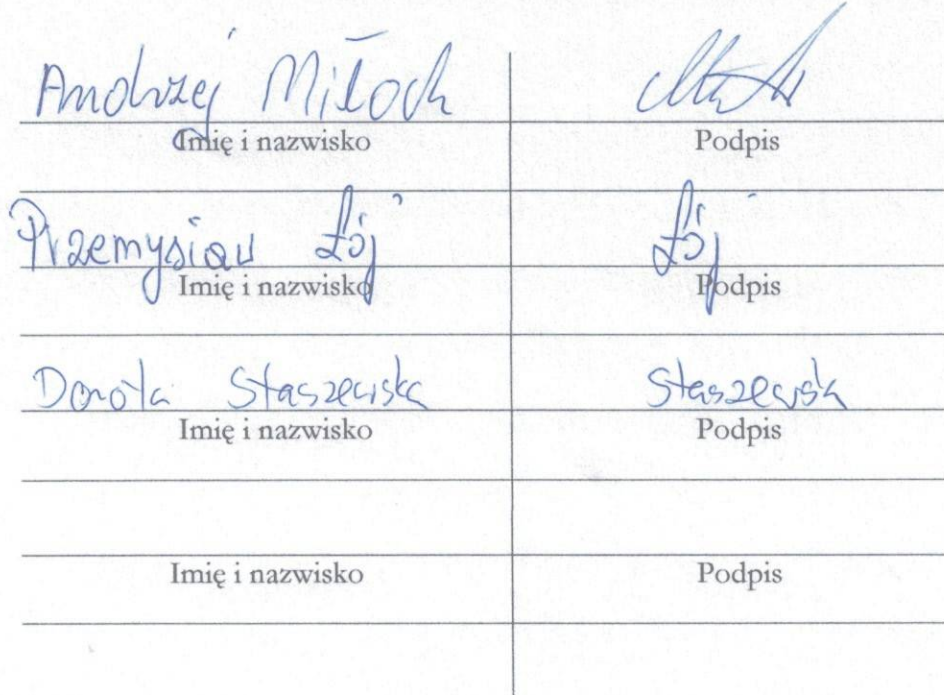 Andrzej Miłoch
Imię i nazwisko Podpis
Przemysław Łój Łój
Imię i nazwisko Podpis
Dorota Staszewska Staszewska
Imię i nazwisko Podpis
Imię i nazwisko Podpis